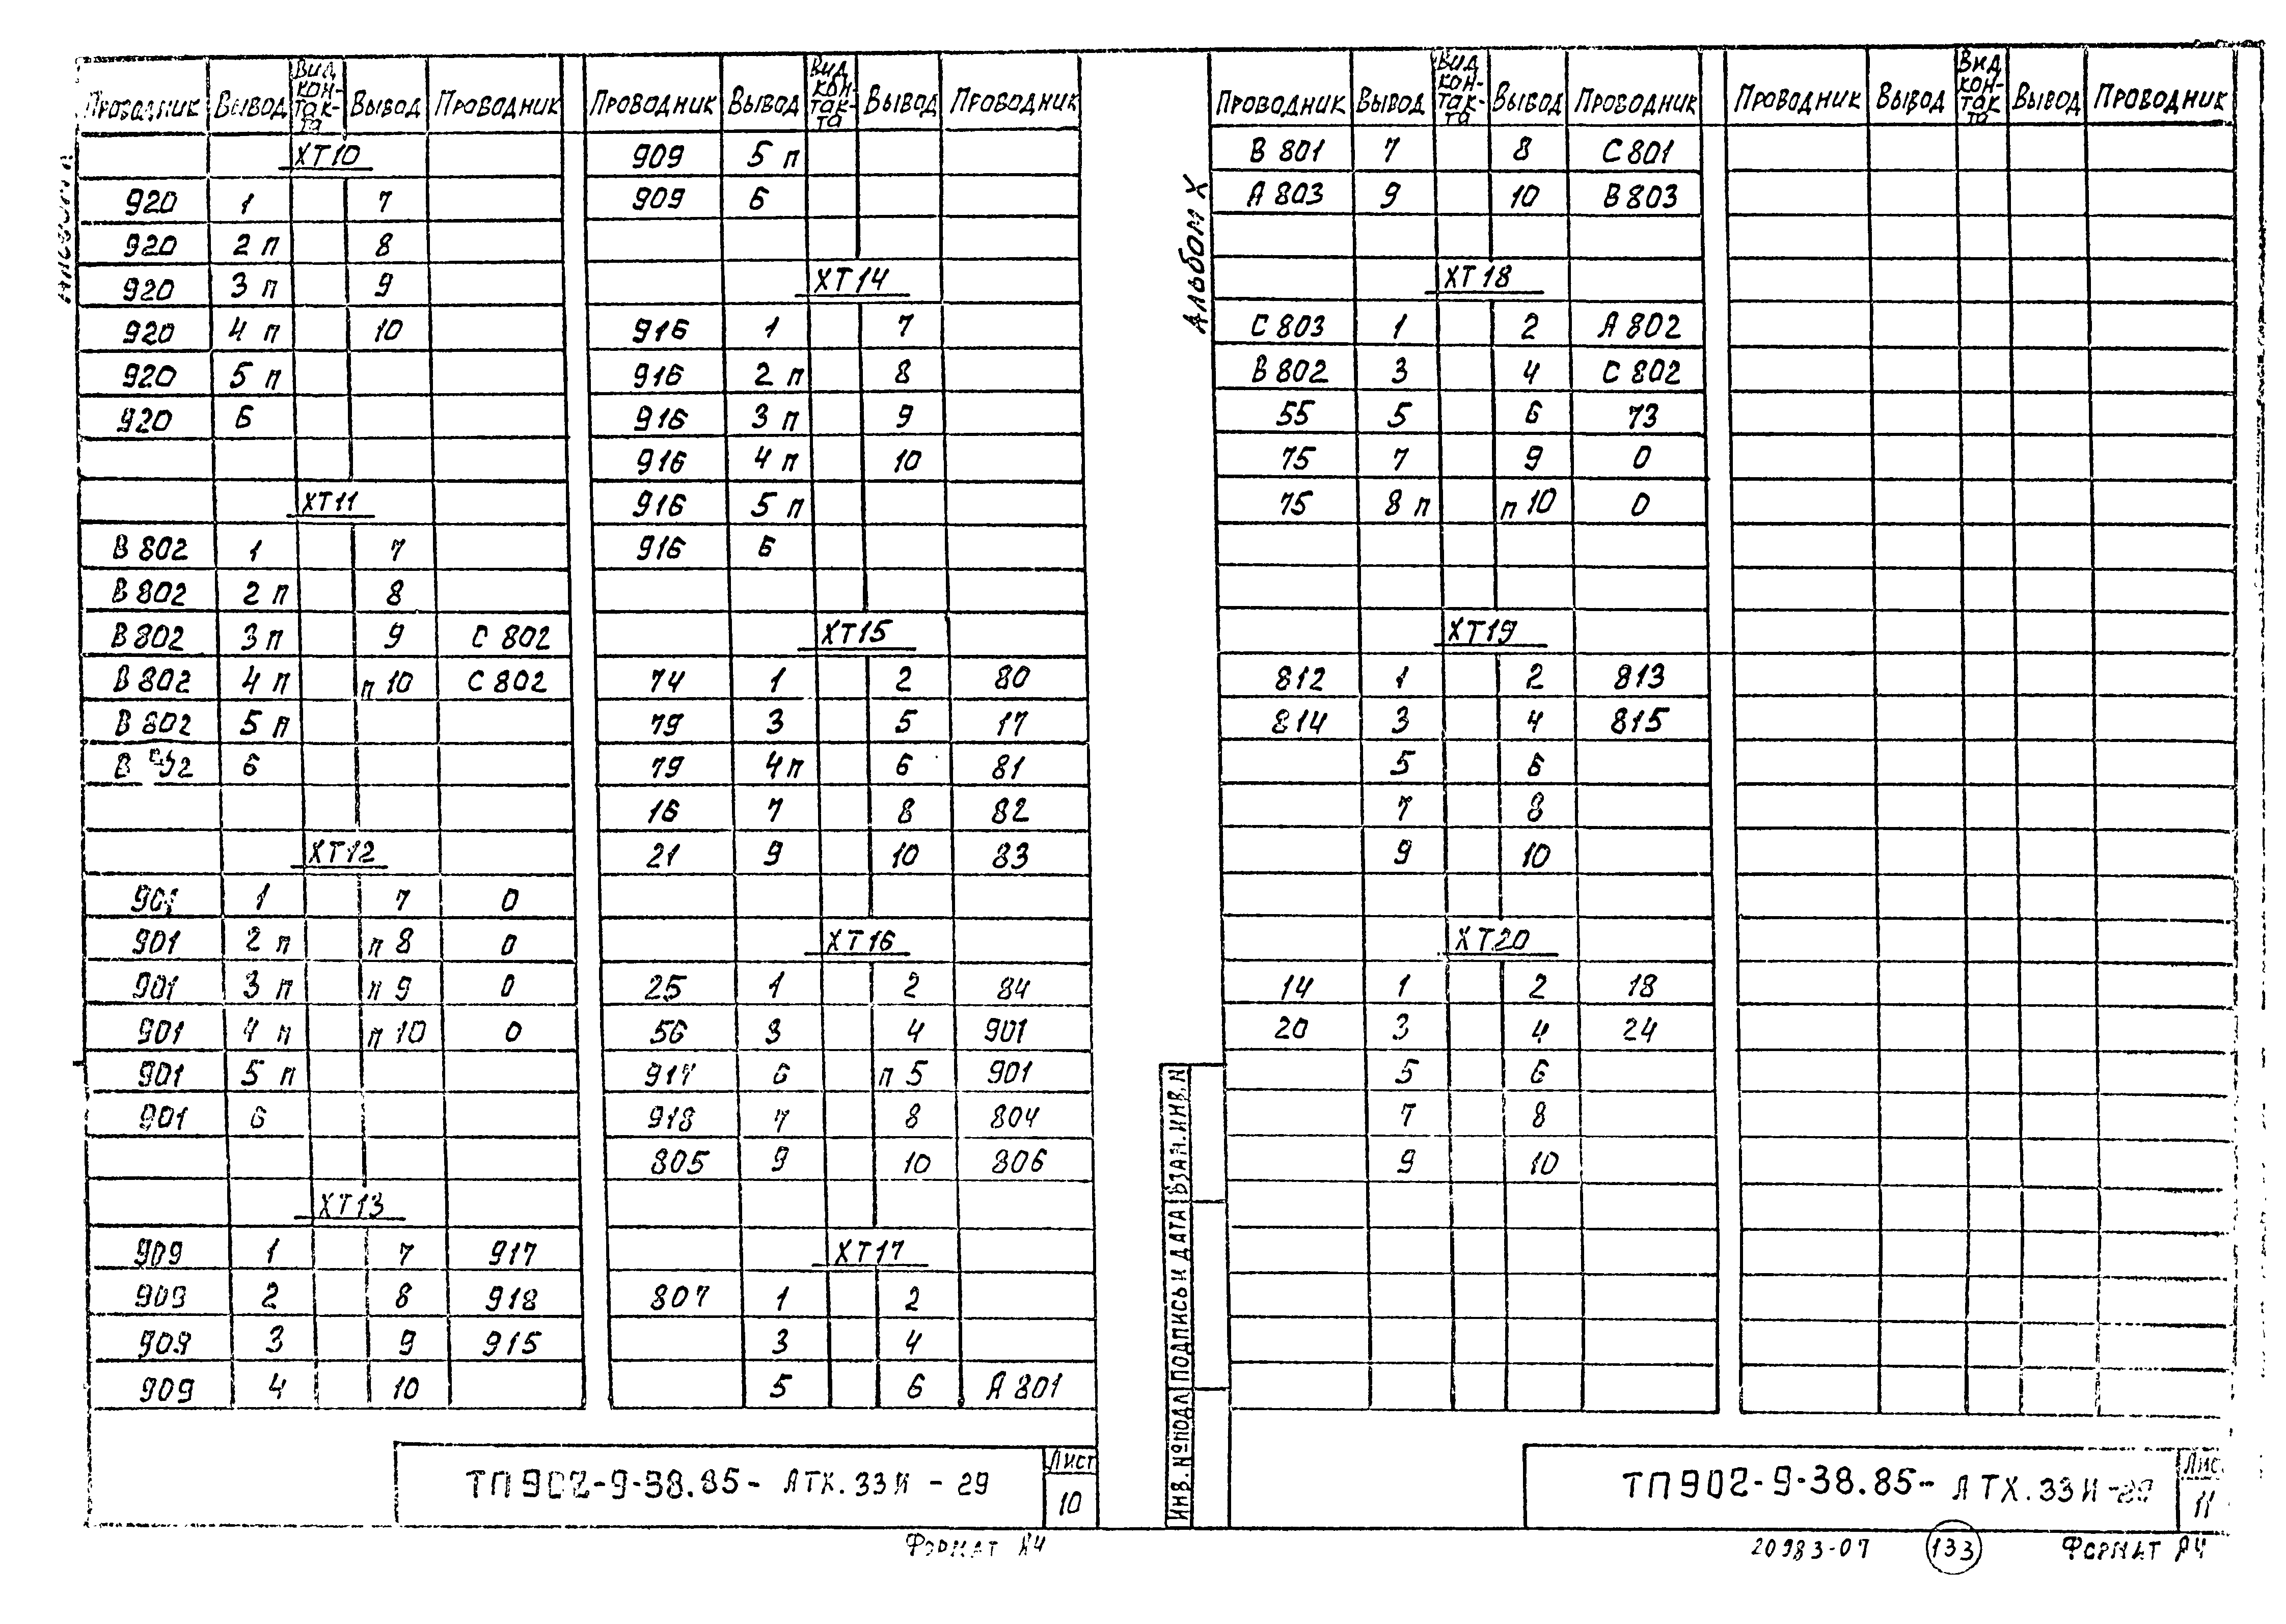 Проводник Вывод Вид контакта Вывод Проводник
ХТ10
920 1 7
920 2 п 8
920 3 п 9
920 4 п 10
920 5 п
920 6
ХТ11
В 802 1 7
В 802 2 п 8
В 802 3 п 9 С 802
В 802 4 п п 10 С 802
В 802 5 п
6
ХТ12
901 1 7 0
901 2 п п 8 0
901 3 п п 9 0
901 4 п п 10 0
901 5 п
901 6
ХТ13
909 1 7 917
909 2 8 918
909 3 9 915
909 4 10
Проводник Вывод Вид контакта Вывод Проводник
909 5 п
909 6
ХТ14
916 1 7
916 2 п 8
916 3 п 9
916 4 п 10
916 5 п
916 6
ХТ15
74 1 2 80
79 3 5 17
79 4 п 6 81
16 7 8 82
21 9 10 83
ХТ16
25 1 2 84
56 3 4 901
917 6 п 5 901
918 7 8 804
805 9 10 806
ХТ17
807 1 2
3 4
5 6 А 801
ТП 902-9-38.85- АТХ.33И - 29
Лист
10
Формат А4
Альбом X
Проводник Вывод Вид контакта Вывод Проводник
В 801 7 8 С 801
А 803 9 10 В 803
ХТ18
С 803 1 2 А 802
В 802 3 4 С 802
55 5 6 73
75 7 9 0
75 8 п п 10 0
ХТ19
812 1 2 813
814 3 4 815
5 6
7 8
9 10
ХТ20
14 1 2 18
20 3 4 24
5 6
7 8
9 10
Проводник Вывод Вид контакта Вывод Проводник
ИНВ. № ПОДЛ ПОДПИСЬ И ДАТА ВЗАМ. ИНВ. N
ТП 902-9-38.85- АТХ.33И -29
11
20983-07 133 Формат А4